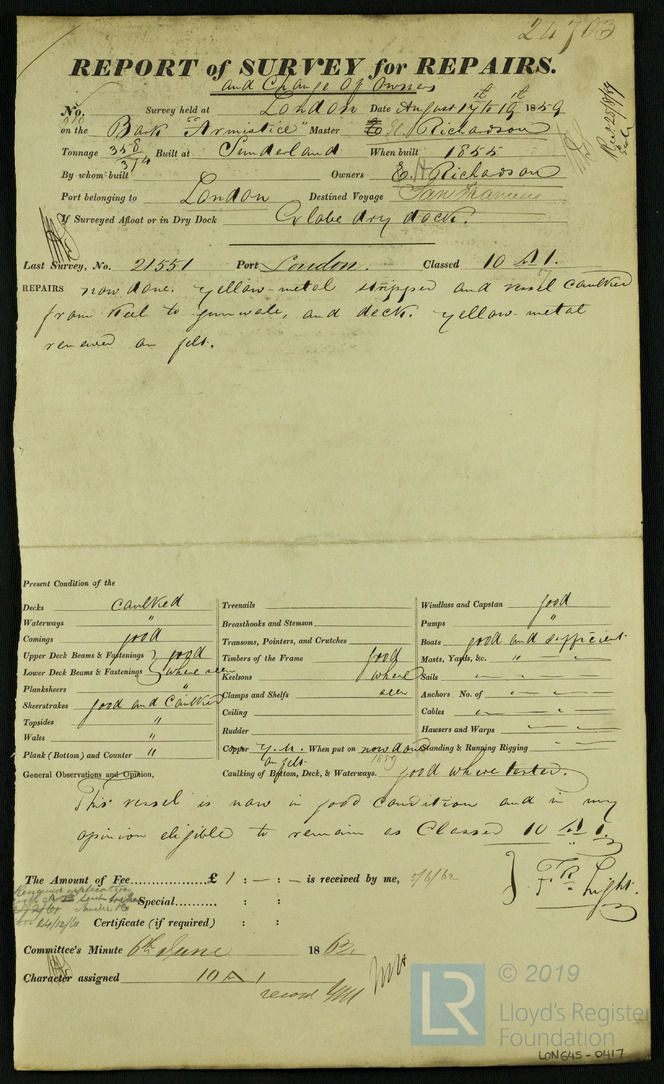 24703
REPORT of SURVEY for REPAIRS.
and Change of Owners
No. Survey held at London Date August 17th & 19th 1859
on the Bark "Armistice" Master E. Richardson
Tonnage 358/314 Built at Sunderland When built 1855
By whom built Owners E. H. Richardson
Port belonging to London Destined Voyage San Francisco
If Surveyed Afloat or in Dry Dock Globe dry dock.
Last Survey, No. 21551 Port London. Classed 10 A 1.
REPAIRS now done. Yellow-metal stripped and vessel caulked
from keel to gunwale, and deck. Yellow-metal
renewed on felt.
Present Condition of the
Decks caulked
Waterways "
Comings good
Upper Deck Beams & Fastenings } good
Lower Deck Beams & Fastenings } where seen
Planksheers "
Sheerstrakes good and caulked
Topsides "
Wales "
Plank (Bottom) and Counter "
Treenails
Breasthooks and Stemson
Transoms, Pointers, and Crutches
Timbers of the Frame good
Keelsons where
Clamps and Shelfs seen
Ceiling
Rudder
Copper Y.M. When put on now done
on felt 1859
Caulking of Bottom, Deck, & Waterways. good where tested.
Windlass and Capstan good
Pumps "
Boats good and sufficient
Masts, Yards, &c. " "
Sails
Anchors No. of
Cables
Hawsers and Warps
Standing & Running Rigging
General Observations and Opinion,
This vessel is now in good condition and in my
opinion eligible to remain as Classed 10 A 1.
The Amount of Fee £ 1 : — : — is received by me, 5/6/62
Special : :
Certificate (if required) : :
Light.
Committee's Minute 6th June 1862
Character assigned 10 A 1
record
© 2019
LR
Lloyd's Register
Foundation
LON645-0417